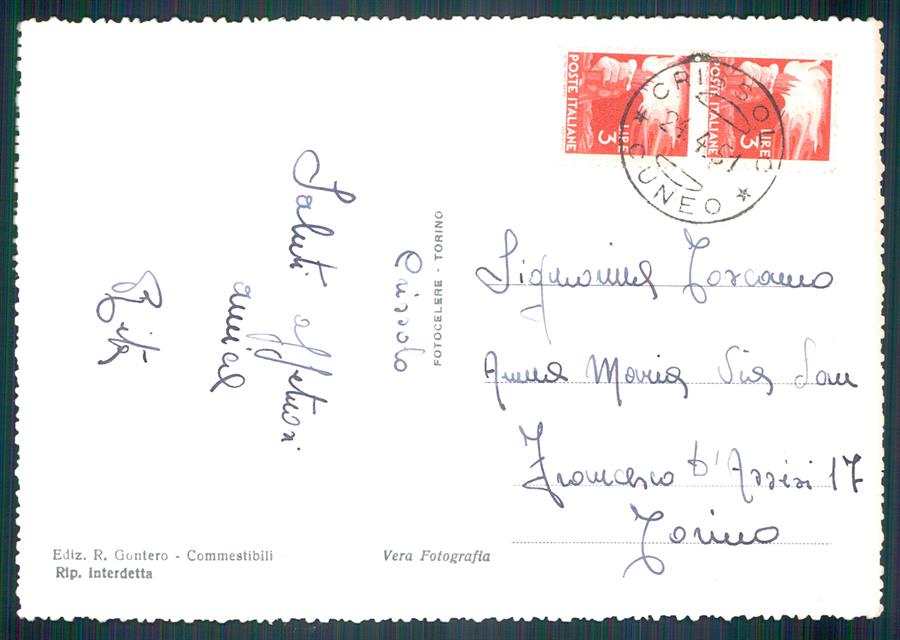 POSTE ITALIANE
LIRE
3
POSTE ITALIANE
LIRE
3
CRISSOLO
CUNEO
Crissolo
Saluti affettuosi
Rita
FOTOCELERE - TORINO
Signorina Toscano
Anna Maria Via San
Francesco D'Assisi 17
Torino
Ediz. R. Gontero - Commestibili
Rip. Interdetta
Vera Fotografia